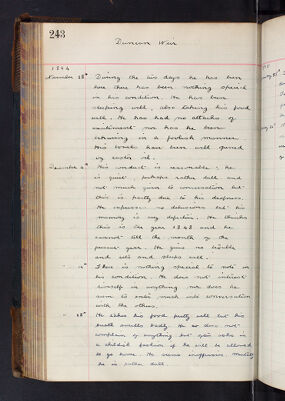 243
Duncan Weir
1844
November 28th During the six days he has been
here there has been nothing special
in his condition. He has been
sleeping well, also taking his food
well. He has had no attacks of
excitement nor has he been
behaving in a foolish manner.
His bowels have been well opened
by castor oil.
December 4th His conduct is reasonable; he
is quiet, perhaps rather dull and
not much given to conversation but
this is partly due to his deafness.
He expresses no delusions but his
memory is very defective. He thinks
this is the year 1848 and he
cannot tell the month of the
present year. He gives no trouble
and eats and sleeps well.
There is nothing special to note in
his condition. He does not interest
himself in anything nor does he
seem to enter much into conversation
with the others.
He takes his food pretty well but his
breath smells badly. He does not
complain of anything but asks in
a childish fashion if he will be allowed
to go home. He seems inoffensive. Mentally
he is rather dull.